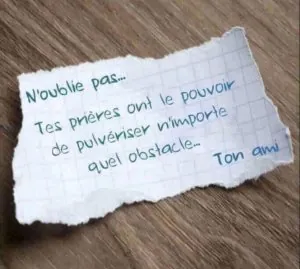 N'oublie pas...
Tes prières ont le pouvoir
de pulvériser n'importe
quel obstacle...
Ton ami